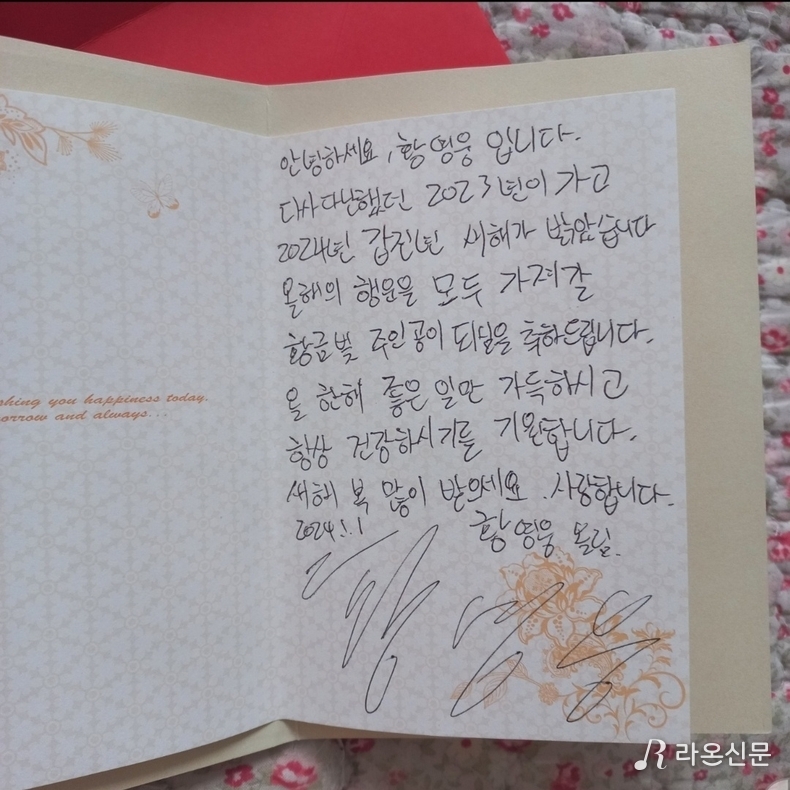 shing you happiness today.
orrow and always...
안녕하세요, 황영웅 입니다.
다사다난했던 2023년이 가고
2024년 갑진년 새해가 밝았습니다
올해의 행운을 모두 가져갈
황금빛 주인공이 되심을 축하드립니다.
올 한해 좋은 일만 가득하시고
항상 건강하시기를 기원합니다.
새해 복 많이 받으세요. 사랑합니다.
2024.1.1
황영웅 올림.
라온신문